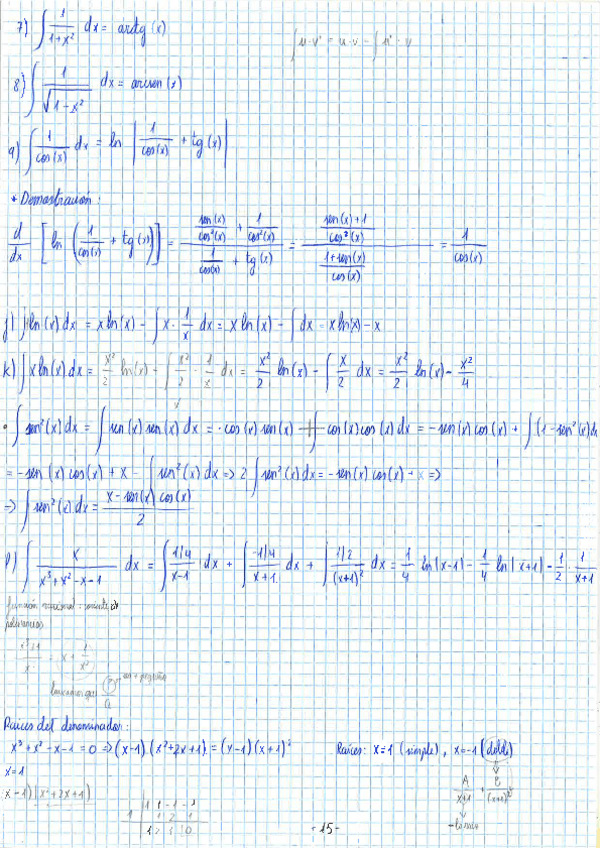 7) ∫ 1/(1+x²) dx = arctg(x)
∫u·v' = u·v - ∫u'·v
8) ∫ 1/√(1-x²) dx = arcsen(x)
9) ∫ 1/cos(x) dx = ln |1/cos(x) + tg(x)|
* Demostración:
d/dx [ln(1/cos(x) + tg(x))] = (sen(x)/cos²(x) + 1/cos²(x))/(1/cos(x) + tg(x)) = ((sen(x)+1)/cos²(x))/((1+sen(x))/cos(x)) = 1/cos(x)
j) ∫ln(x) dx = x ln(x) - ∫x · 1/x dx = x ln(x) - ∫dx = x ln(x) - x
k) ∫x ln(x) dx = x²/2 ln(x) - ∫x²/2 · 1/x dx = x²/2 ln(x) - ∫x/2 dx = x²/2 ln(x) - x²/4
· ∫sen²(x) dx = ∫sen(x) sen(x) dx = -cos(x) sen(x) + ∫cos(x) cos(x) dx = -sen(x) cos(x) + ∫(1-sen²(x)) dx
= -sen(x) cos(x) + x - ∫sen²(x) dx => 2∫sen²(x) dx = -sen(x) cos(x) + x =>
=> ∫sen²(x) dx = (x - sen(x) cos(x))/2
p) ∫ x/(x³+x²-x-1) dx = ∫ (1/4)/(x-1) dx + ∫ (-1/4)/(x+1) dx + ∫ (1/2)/(x+1)² dx = 1/4 ln|x-1| - 1/4 ln|x+1| - 1/2 · 1/(x+1)
función racional: cociente d
polinomios
= x + 1/x²
Raíces del denominador:
x³+x²-x-1=0 => (x-1)(x²+2x+1) = (x-1)(x+1)²
Raíces: x=1 (simple), x=-1 (doble)
x=1
x-1) (x²+2x+1)
A/(x+1) + B/(x+1)²
1 1 -1 -1
1 | 1 2 1
1 2 1 0
-15-